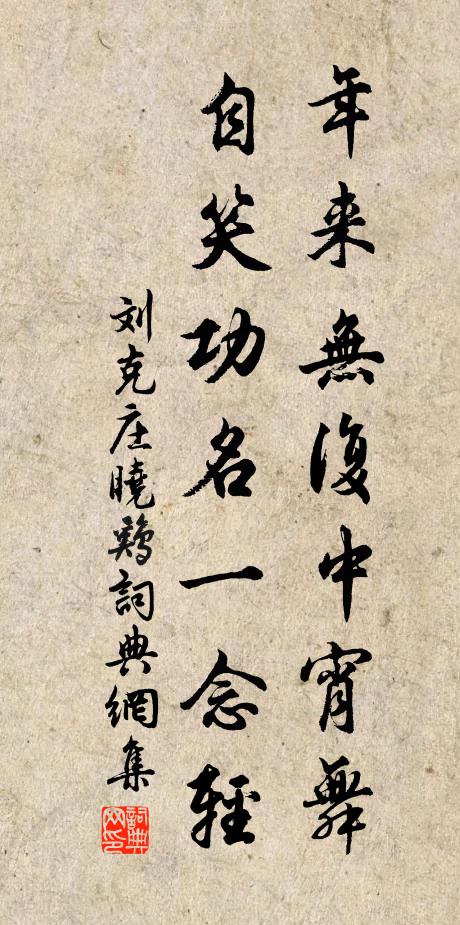 年来無復中宵舞
自笑功名一念輕
刘克庄曉鷄詞典網集
詞典网印